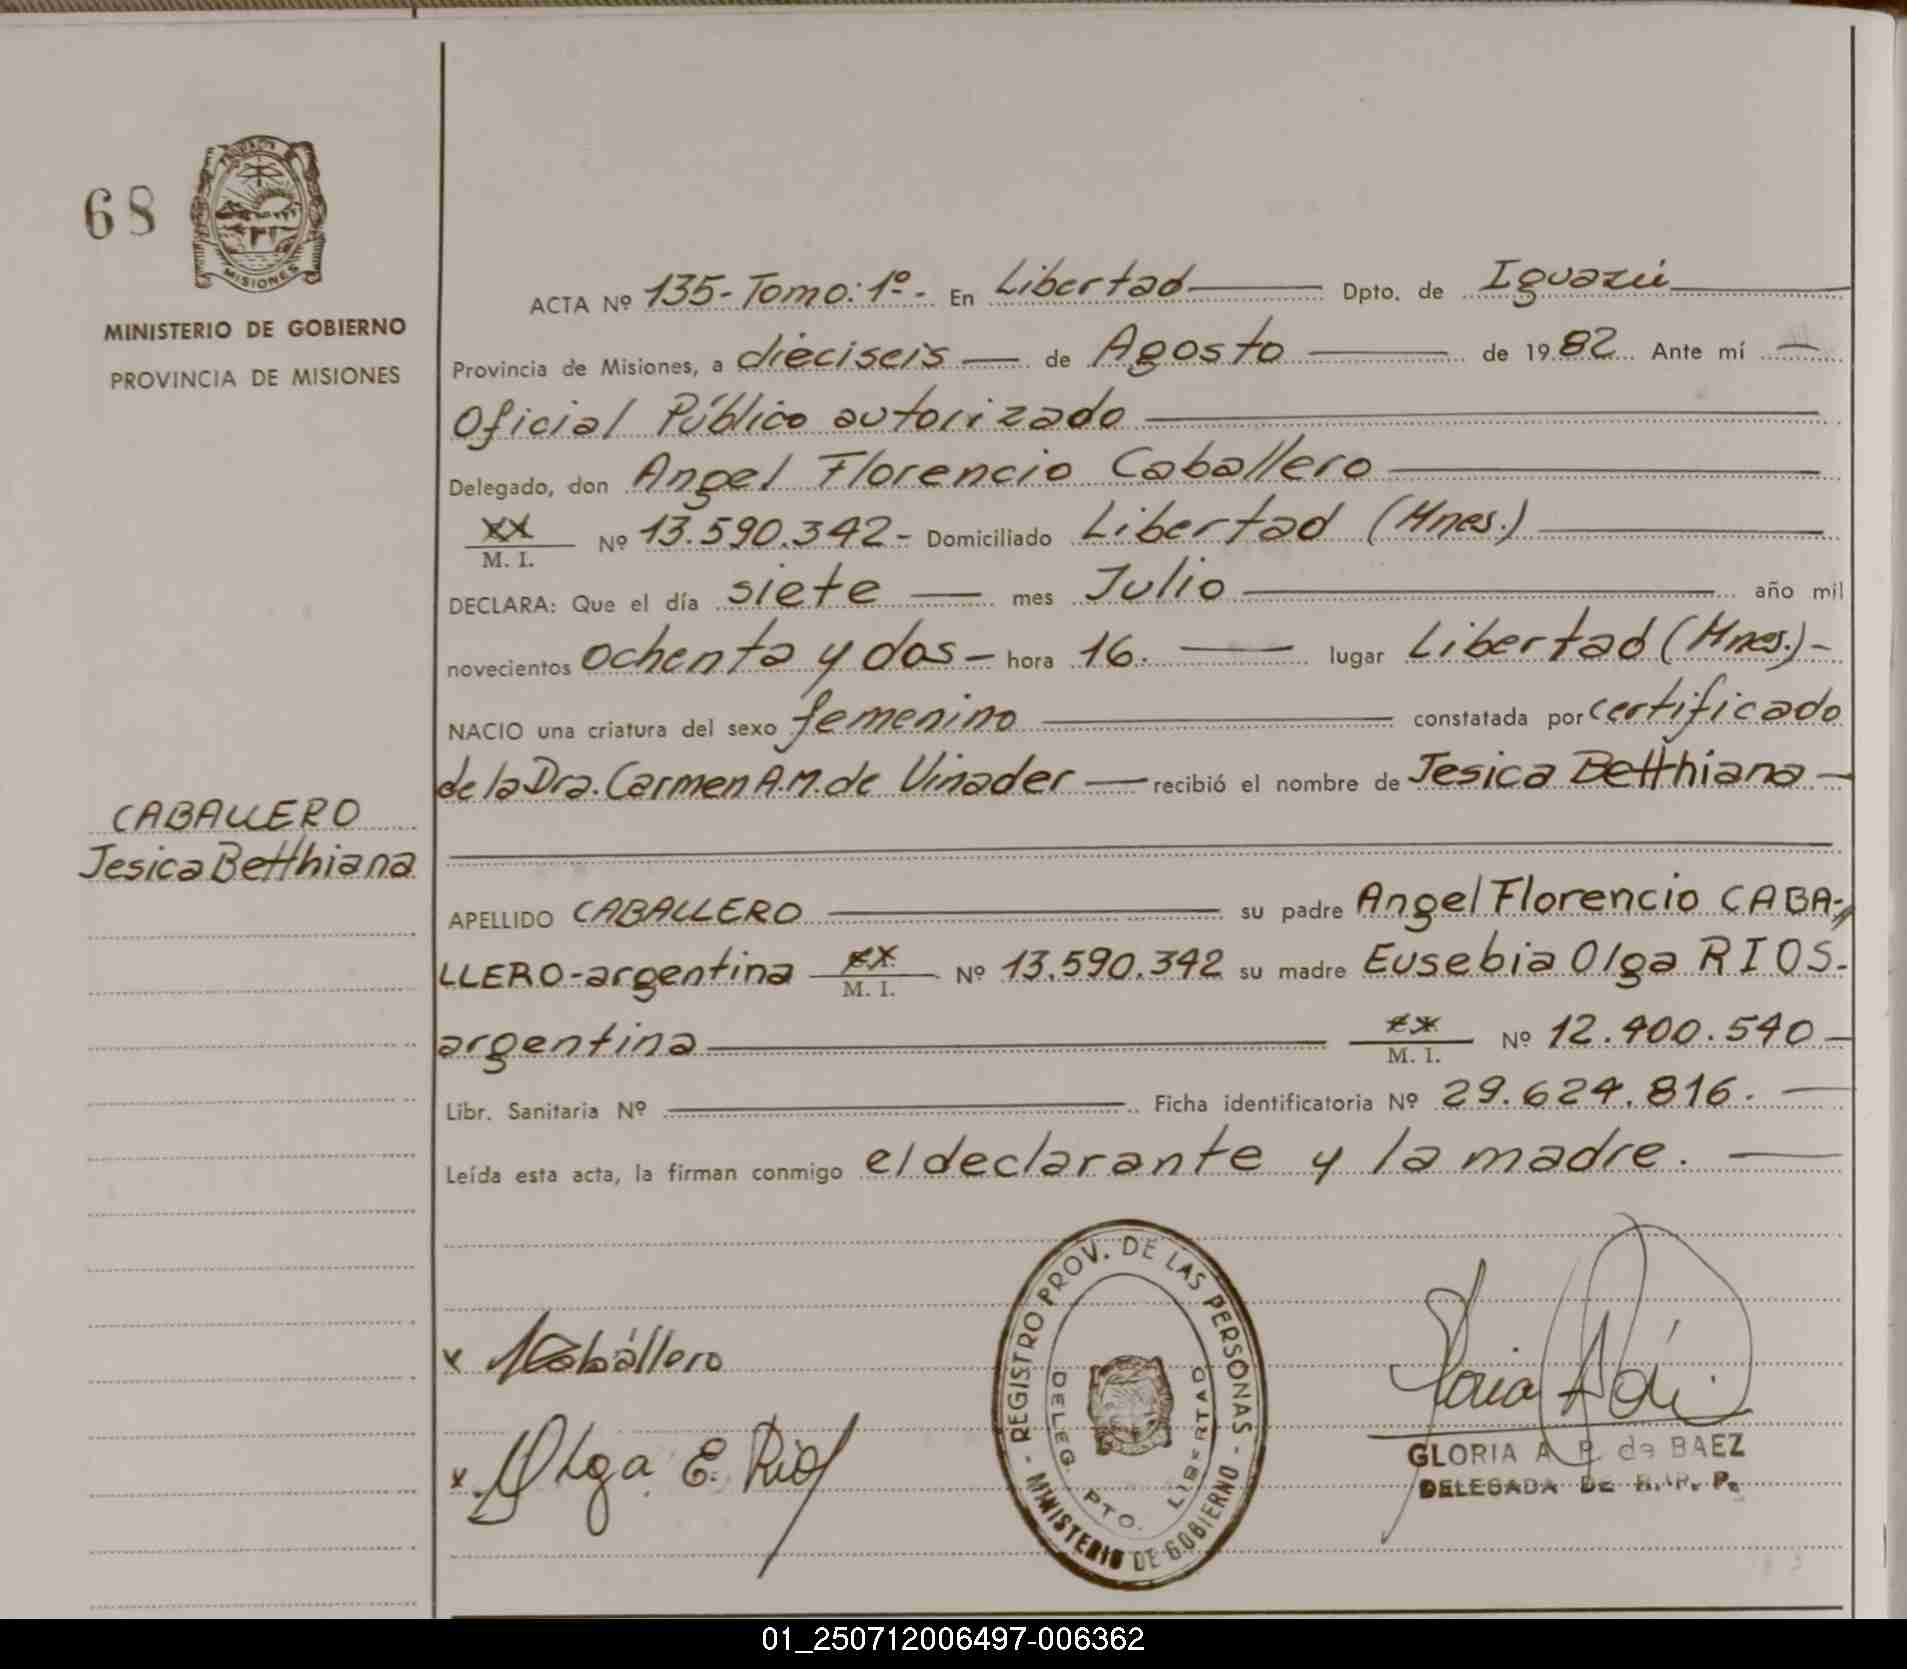 68
MISIONES
MINISTERIO DE GOBIERNO
PROVINCIA DE MISIONES
CABALLERO
Jesica Betthiana
ACTA Nº 135-Tomo: 1º.- En Libertad Dpto. de Iguazú
Provincia de Misiones, a dieciseis de Agosto de 1982 Ante mí
Oficial Público autorizado
Delegado, don Angel Florencio Caballero
xx M. I. Nº 13.590.342- Domiciliado Libertad (Mnes.)
DECLARA: Que el día siete mes Julio año mil
novecientos ochenta y dos - hora 16. lugar Libertad (Mnes.)-
NACIO una criatura del sexo femenino constatada por certificado
de la Dra. Carmen A.M. de Vinader recibió el nombre de Jesica Betthiana
APELLIDO CABALLERO su padre Angel Florencio CABA-
LLERO-argentina xx M. I. Nº 13.590.342 su madre Eusebia Olga RIOS.
argentina xx M. I. Nº 12.400.540
Libr. Sanitaria Nº Ficha identificatoria Nº 29.624.816.
Leída esta acta, la firman conmigo el declarante y la madre.
x Caballero
x Olga E. Rios
REGISTRO PROV. DE LAS PERSONAS - MINISTERIO DE GOBIERNO -
DELEG. PTO. LIBERTAD
GLORIA A. R. de BAEZ
DELEGADA DE R. P. P.
01_250712006497-006362